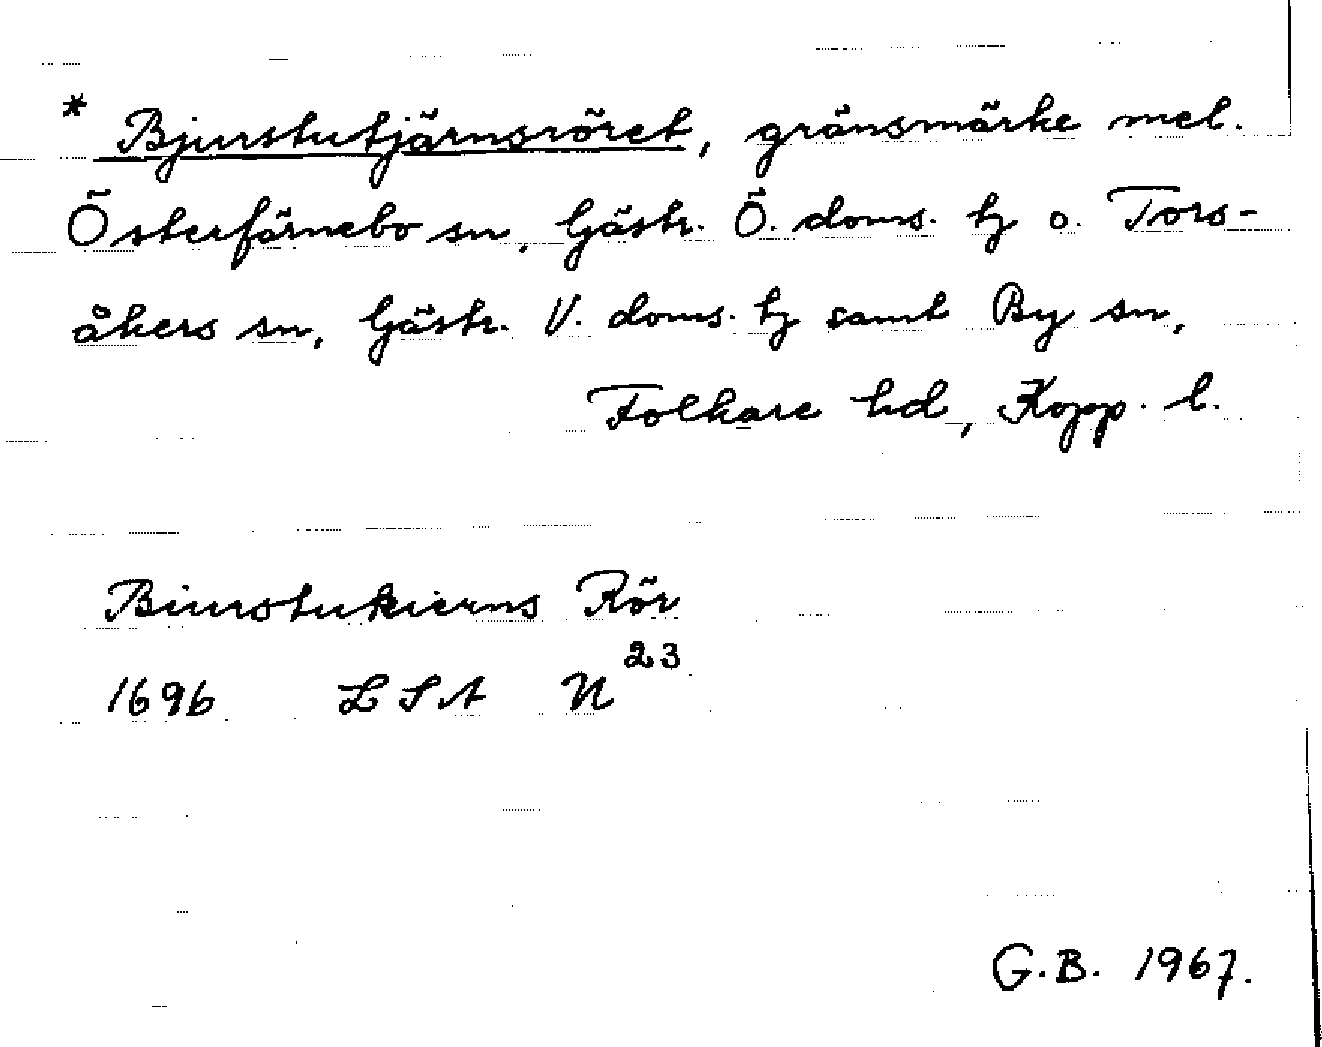 * Bjurstutjärnsröret, gränsmärke mel.
Österfärnebo sn, Gästr. Ö. doms. tj o. Tors-
åkers sn, Gästr. V. doms. tj samt By sn,
Folkare hd, Kopp. l.
Biurstukierns Rör
1696 LSA N 23
G.B. 1967.